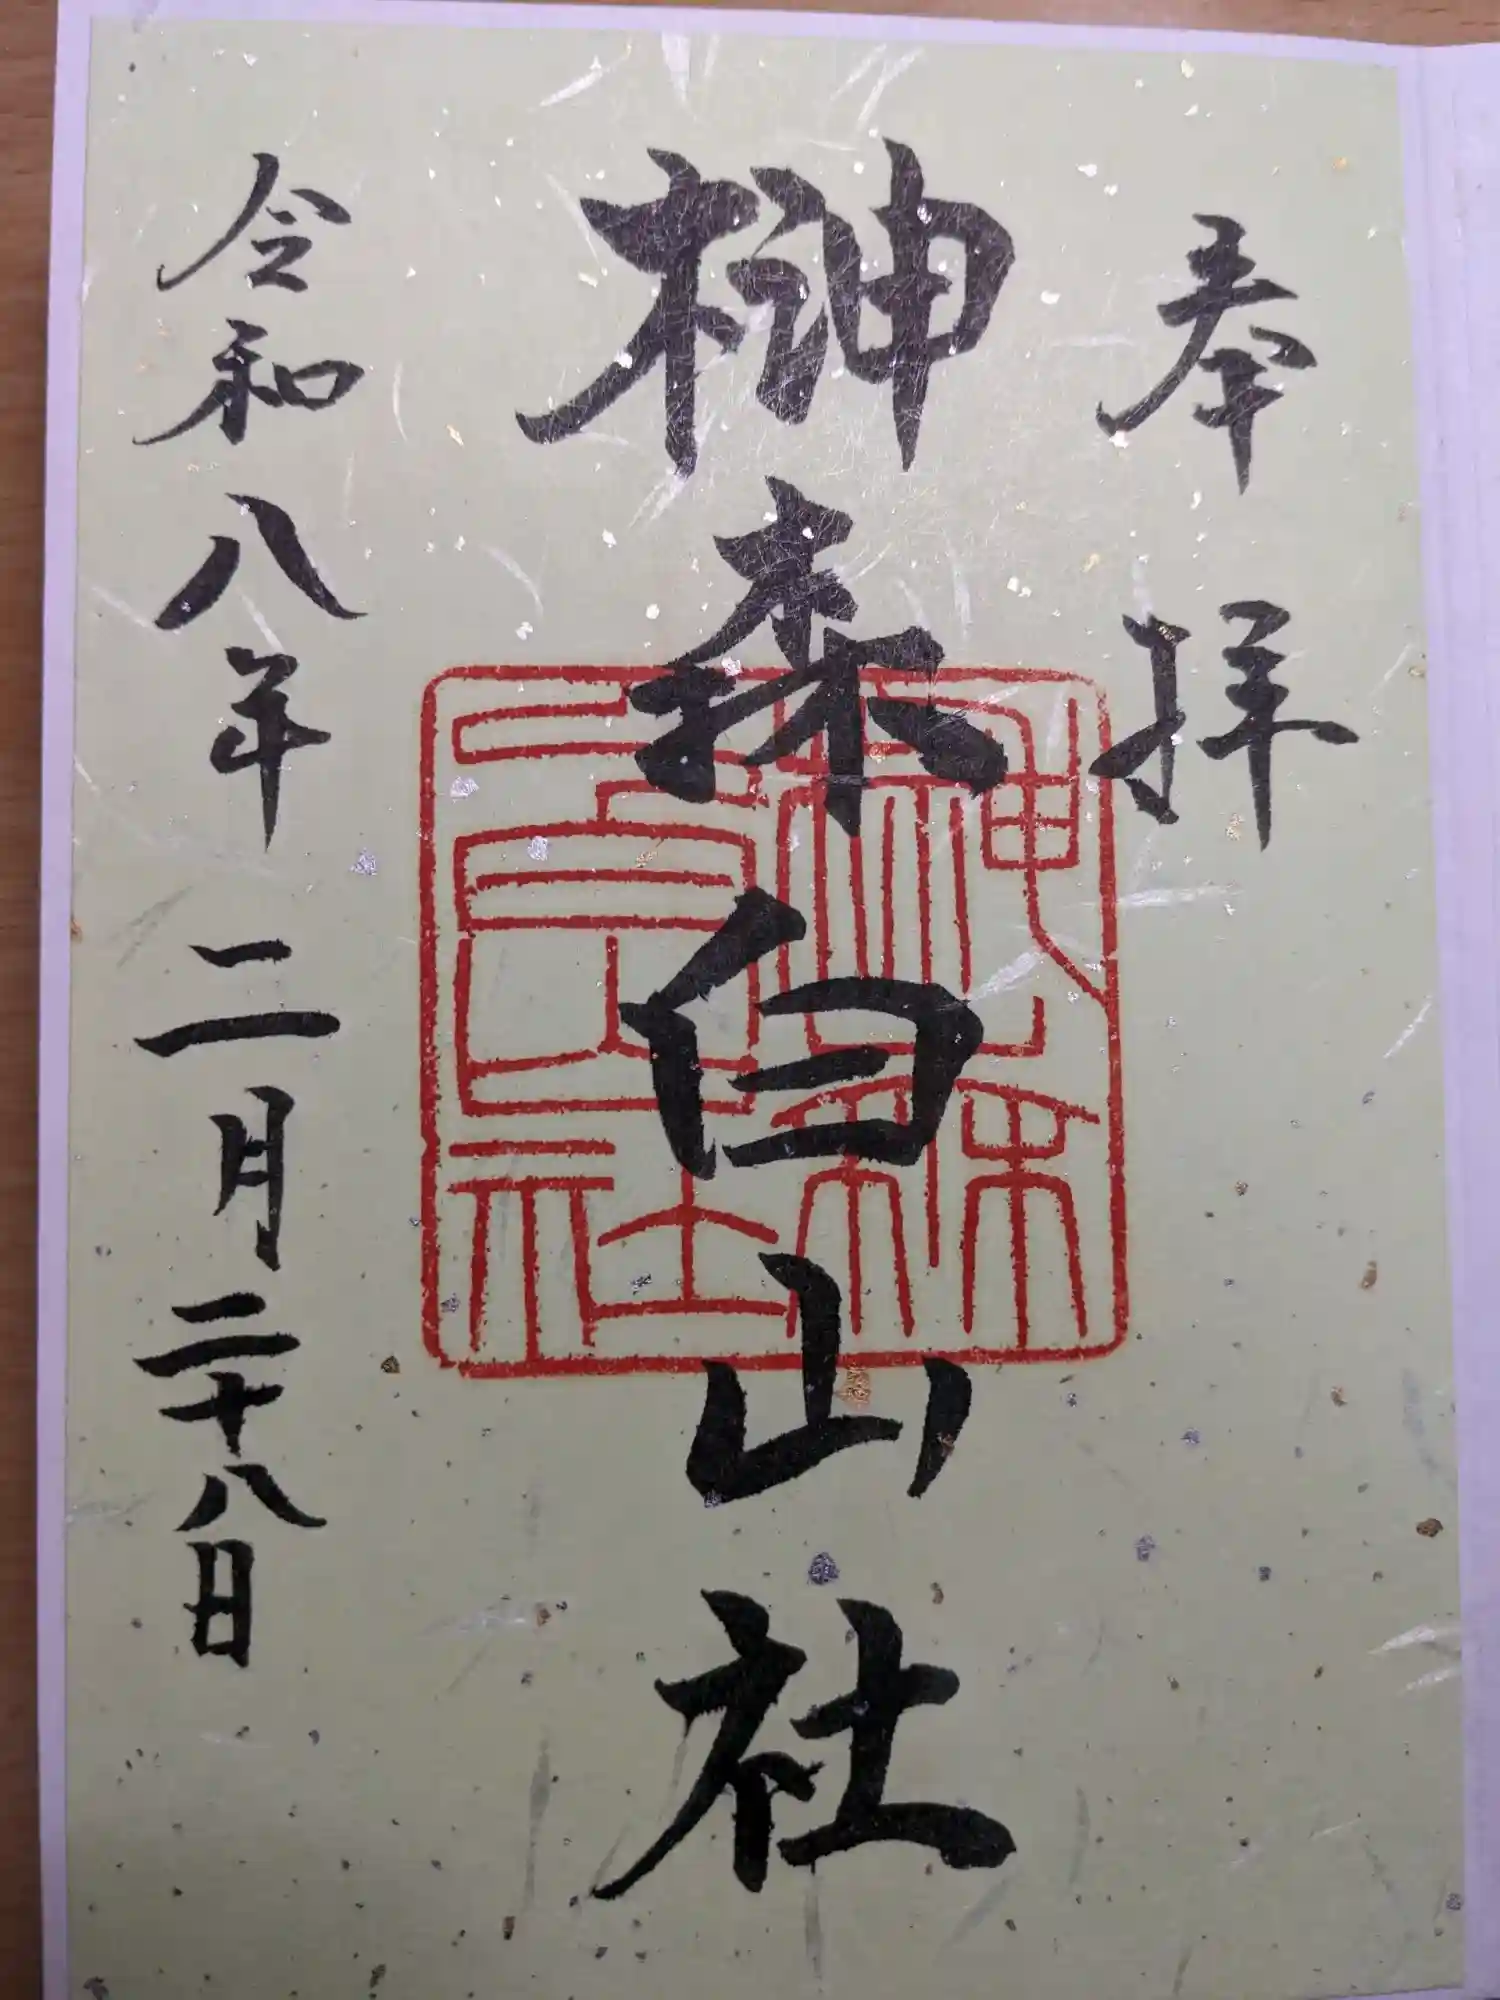 奉拝
榊森白山社
令和八年二月二十八日